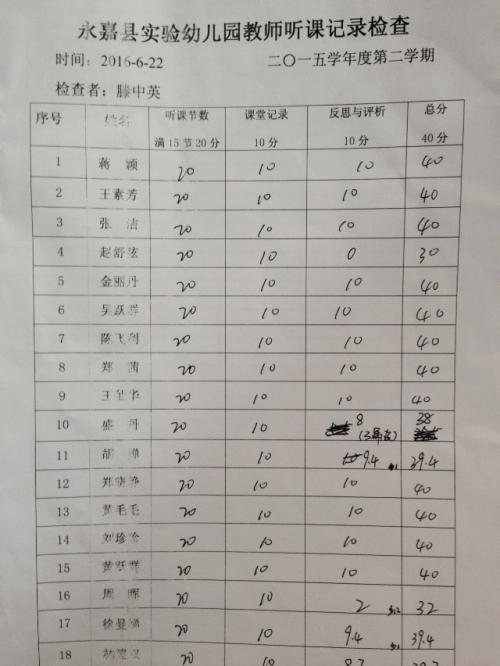 永嘉县实验幼儿园教师听课记录检查
时间：2016-6-22 二〇一五学年度第二学期
检查者：滕中英
序号 姓名 听课节数 课堂记录 反思与评析 总分
满15节20分 10分 10分 40分
1 蒋颖 20 10 10 40
2 王素芳 20 10 10 40
3 张洁 20 10 10 40
4 赵舒弦 20 10 0 30
5 金丽丹 20 10 10 40
6 吴跃群 20 10 10 40
7 陈飞利 20 10 10 40
8 郑茜 20 10 10 40
9 王佳华 20 10 10 40
10 盛丹 20 10 8 38
11 胡 20 10 9.4 39.4
12 郑晓静 20 10 10 40
13 黄毛毛 20 10 10 40
14 刘珍珍 20 10 10 40
15 黄跃辉 20 10 10 40
16 周晖 20 10 2 32
17 徐曼 20 10 9.4 39.4
18 20 10